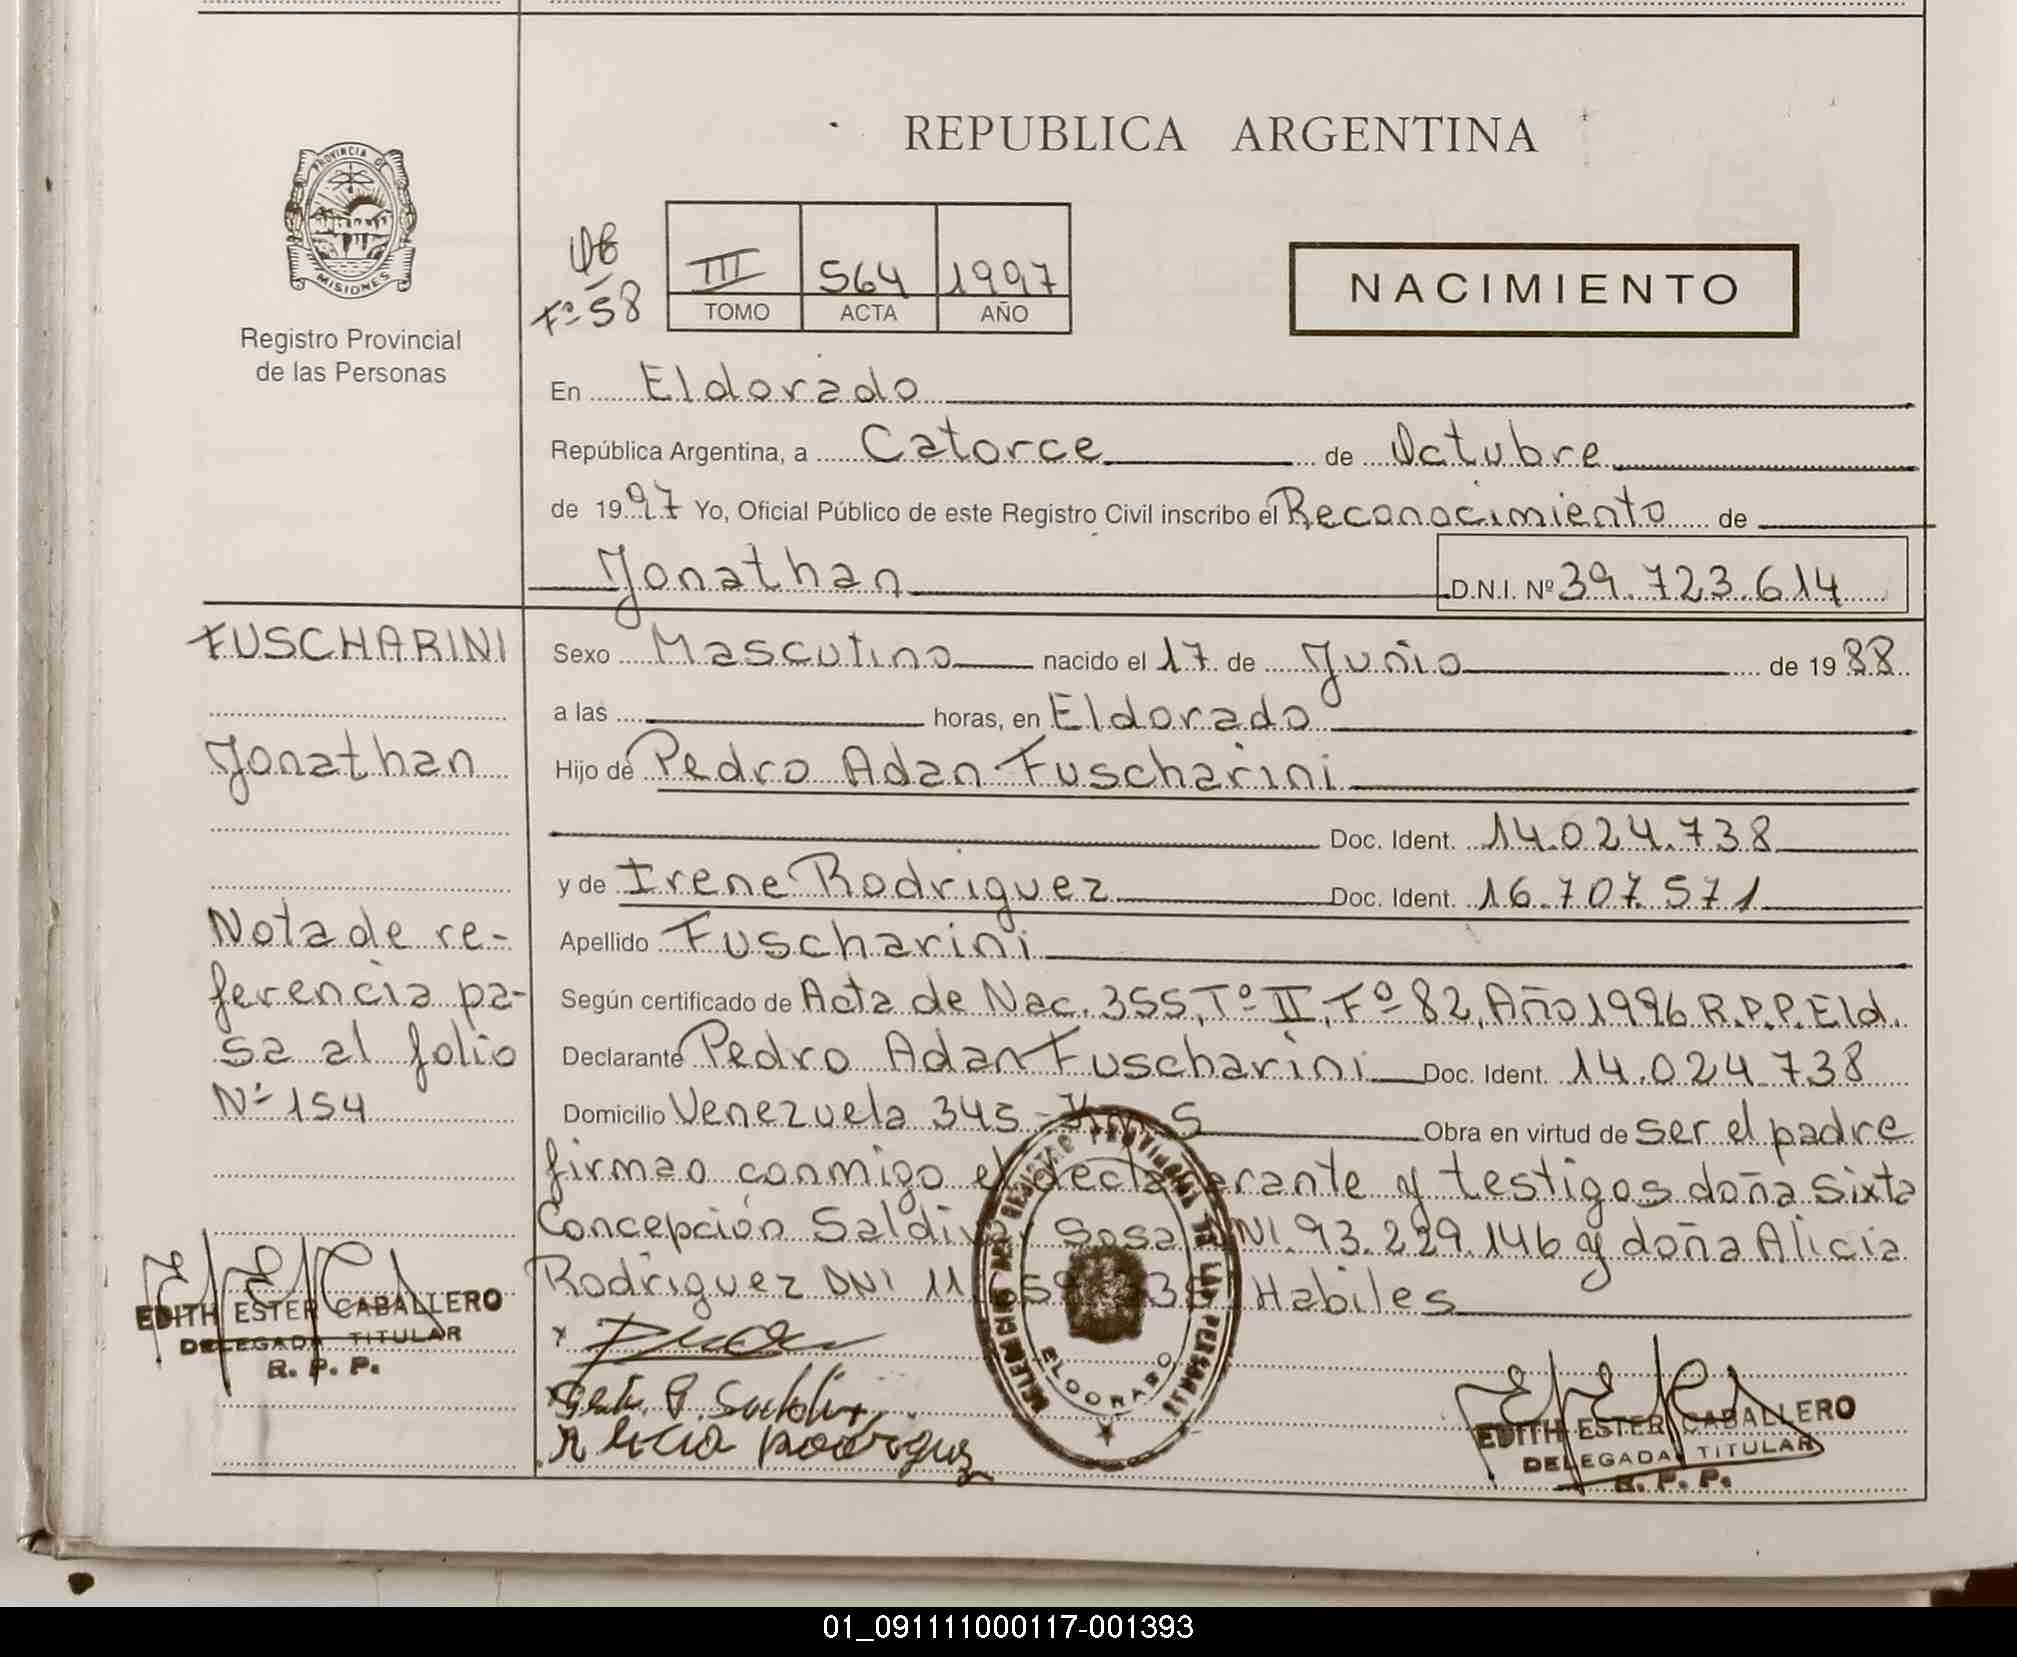 REPUBLICA ARGENTINA
PROVINCIA DE
MISIONES
Registro Provincial
de las Personas
Fº 58
III 564 1997
TOMO ACTA AÑO
NACIMIENTO
En Eldorado
República Argentina, a Catorce de Octubre
de 1997 Yo, Oficial Público de este Registro Civil inscribo el Reconocimiento de
Jonathan D.N.I. Nº 39.723.614
FUSCHARINI
Jonathan
Nota de re-
ferencia pa-
sa al folio
Nº 154
EDITH ESTER CABALLERO
DELEGADA TITULAR
R. P. P.
Sexo Masculino nacido el 17 de Junio de 1988
a las horas, en Eldorado
Hijo de Pedro Adan Fuscharini
Doc. Ident. 14.024.738
y de Irene Rodriguez Doc. Ident. 16.707.571
Apellido Fuscharini
Según certificado de Acta de Nac. 355, Tº II, Fº 82, Año 1996 R.P.P. Eld.
Declarante Pedro Adan Fuscharini Doc. Ident. 14.024.738
Domicilio Venezuela 345 - Km 5 Obra en virtud de ser el padre
firmao conmigo el declarante y testigos doña Sixta
Concepción Saldivar Sosa DNI. 93.229.146 y doña Alicia
Rodriguez DNI 11 Habiles
Alicia Rodriguez
REGISTRO PROVINCIAL DE LAS PERSONAS
ELDORADO
EDITH ESTER CABALLERO
DELEGADA TITULAR
R. P. P.
01_091111000117-001393